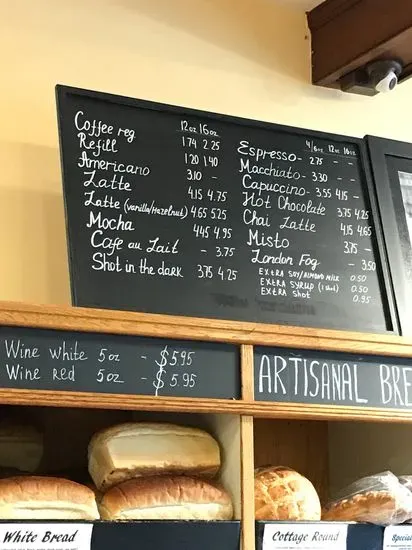 12oz 16oz
Coffee reg 1.74 2.25
Refill 1.20 1.40
Americano 3.10 -
Latte 4.15 4.75
Latte (vanilla/Hazelnut) 4.65 5.25
Mocha 4.45 4.95
Cafe au Lait - 3.75
Shot in the dark 3.75 4.25
4/6oz 12oz 16oz
Espresso - 2.75 - -
Macchiato - 3.30 - -
Capuccino - 3.55 4.15 -
Hot Chocolate 3.75 4.25
Chai Latte 4.15 4.65
Misto 3.75 -
London Fog - 3.50
Extra Soy/Almond Milk 0.50
Extra Syrup (1 shot) 0.50
Extra Shot 0.95
Wine white 5oz - $5.95
Wine red 5oz - $5.95
ARTISANAL BRE
White Bread
Cottage Round
Special